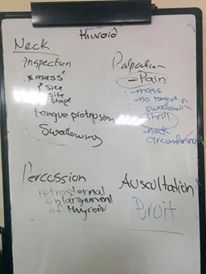 Thyroid
Neck
Inspection
* mass
? size
site
shape
tongue protrusion
Swallowing
Palpation
Pain
mass
No tongue
swallowing
thrill
neck
circumference
Percussion
retrosternal
enlargement
of thyroid
Auscultation
Bruit